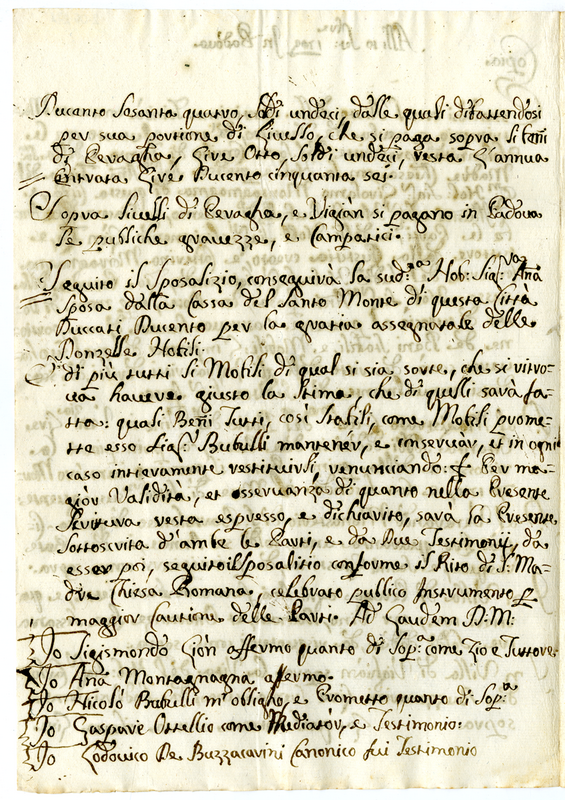 Ducento sesanta quatro, soldi undeci, dalle quali dibattendosi
per sua portione di Livello, che si paga sopra li beni
di Pevaghia, Lire Otto, soldi undeci, resta l'annua
Entrata Lire Ducento cinquanta sei.
Sopra livelli di Pevagha, e Vigian si pagano in Padova
le publiche gravezze, e Campatici.
Seguito il sposalizio, conseguirà la sud.ª Nob: Sig.ra Anna
sposa dalla Cassa del Santo Monte di questa Città
Duccati Ducento per la gratia assegnatale delle
Donzelle Nobili.
di più tutti li Mobili di qual si sia sorte, che si ritro-
va havere giusto la stima, che di quelli sarà fa-
tta: quali Beni Tutti, così stabili, come Mobili prome-
tte esso Sig.r Bubulli mantener, e conservar, et in ogni
caso intieramente restituirli, renunciando: Per ma-
gior Validità, et osservanza di quanto nella Presente
Scrittura resta espresso, e dichiarito, sarà la Presente
sottoscrita d'ambe le Parti, e da Due Testimonij, da
esser poi, seguito il sposalitio conforme il Rito di S. Ma-
dre Chiesa Romana, celebrato publico Instrumento p
maggior Cautione delle Parti. Ad Laudem D: M:
Io Sigismondo Lion affermo quanto di sop.ª come Zio e Tuttore
Io Anna Montagnagna affermo.
Io Nicolò Bubulli m'obligho, e Prometto quanto di sop.ª
Io Gaspare Ottellio come Mediator, e Testimonio:
Io Lodovico De Buzzacarini Canonico fui Testimonio